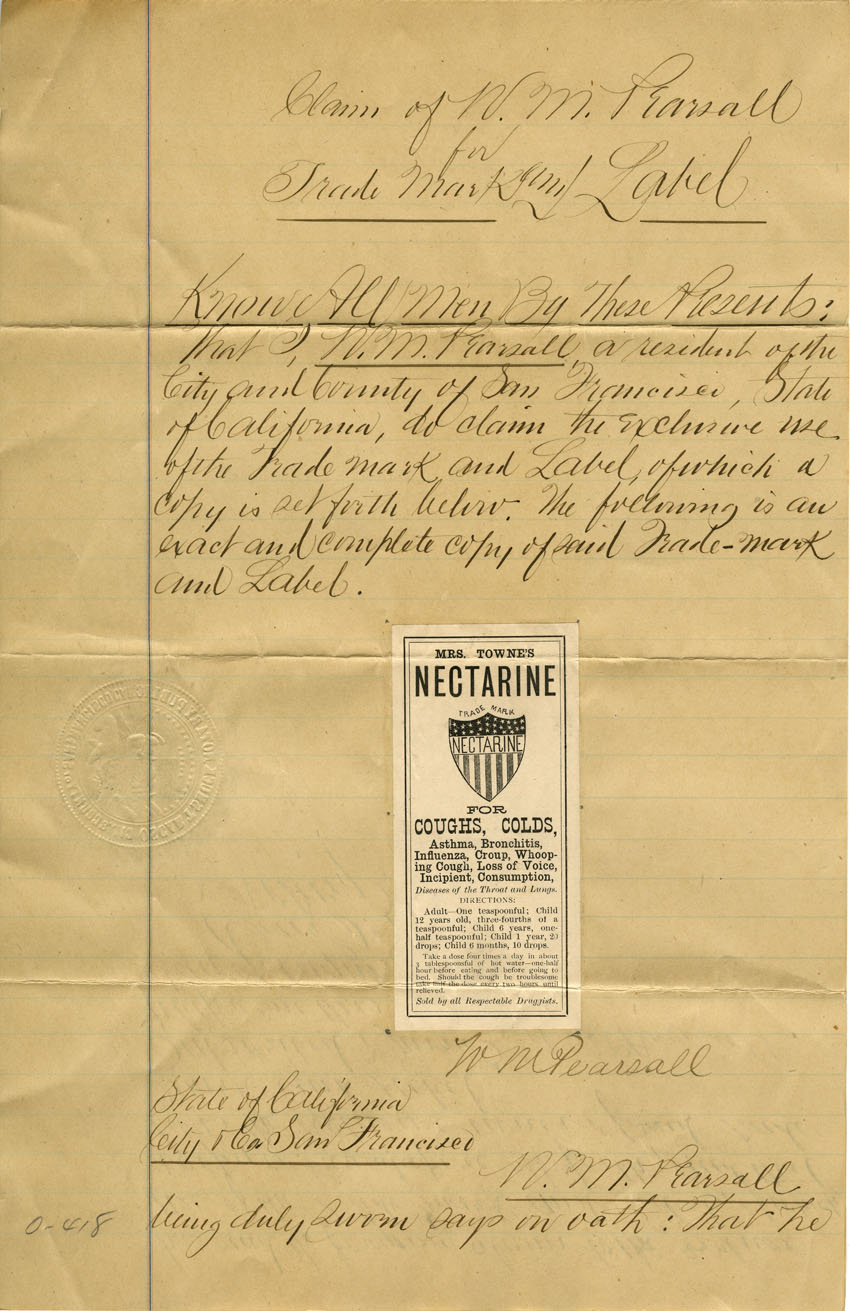 Claim of W. M. Pearsall
for
Trade Mark and Label
Know All Men By These Presents:
That I, W. M. Pearsall, a resident of the
City and County of San Francisco, State
of California, do claim the exclusive use
of the Trade mark and Label, of which a
copy is set forth below. The following is an
exact and complete copy of said Trade-mark
and Label.
MRS. TOWNE'S
NECTARINE
TRADE MARK
NECTARINE
FOR
COUGHS, COLDS,
Asthma, Bronchitis,
Influenza, Croup, Whoop-
ing Cough, Loss of Voice,
Incipient, Consumption,
Diseases of the Throat and Lungs.
DIRECTIONS:
Adult—One teaspoonful; Child
12 years old, three-fourths of a
teaspoonful; Child 6 years, one-
half teaspoonful; Child 1 year, 20
drops; Child 6 months, 10 drops.
Take a dose four times a day in about
3 tablespoonsful of hot water—one-half
hour before eating and before going to
bed. Should the cough be troublesome
take half the dose every two hours until
relieved.
Sold by all Respectable Druggists.
W M Pearsall
State of California
City & Co San Francisco
W. M. Pearsall
being duly sworn says on oath: That he
0-418